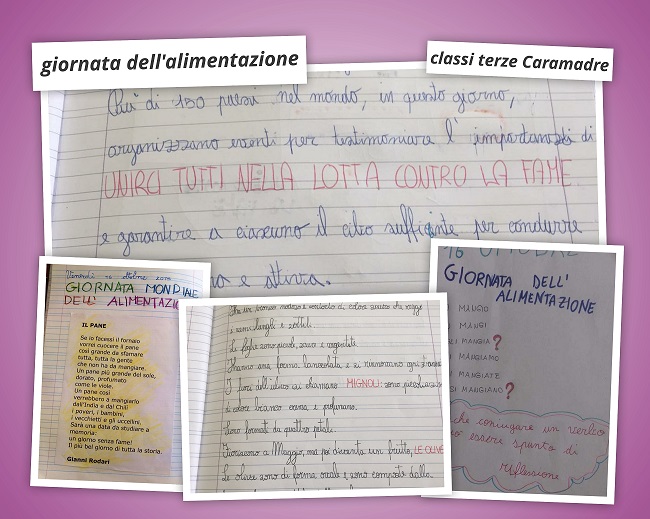 giornata dell'alimentazione
classi terze Caramadre
Più di 150 paesi nel mondo, in questo giorno,
organizzano eventi per testimoniare l' importanza di
UNIRCI TUTTI NELLA LOTTA CONTRO LA FAME
e garantire a ciascuno il cibo sufficiente per condurre
e attiva.
GIORNATA MONDIALE
DELL' ALIMENTAZIO
IL PANE
Se io facessi il fornaio
vorrei cuocere il pane
così grande da sfamare
tutta, tutta la gente
che non ha da mangiare.
Un pane più grande del sole,
dorato, profumato
come le viole.
Un pane così
verrebbero a mangiarlo
dall'India e dal Chilì
i poveri, i bambini,
i vecchietti e gli uccellini.
Sarà una data da studiare a
memoria:
un giorno senza fame!
Il più bel giorno di tutta la storia.
Gianni Rodari
i rami lunghi e sottili.
Le foglie sono piccole, dure e
Hanno una forma lanceolata e si rinnovano ogni
I fiori dell'ulivo si chiamano MIGNOLI: sono
di colore bianco crema e profumano.
Sono formati da quattro petali.
Fioriscono a Maggio, ma poi diventa un frutto, LE OLIVE
Le olive sono di forma ovale e sono composte dalla
16 OTTOBRE
GIORNATA DELL'
ALIMENTAZIONE
MANGIO
MANGI
MANGIA?
MANGIAMO
MANGIATE
MANGIANO?
che coniugare un verbo
essere spunto di
riflessione